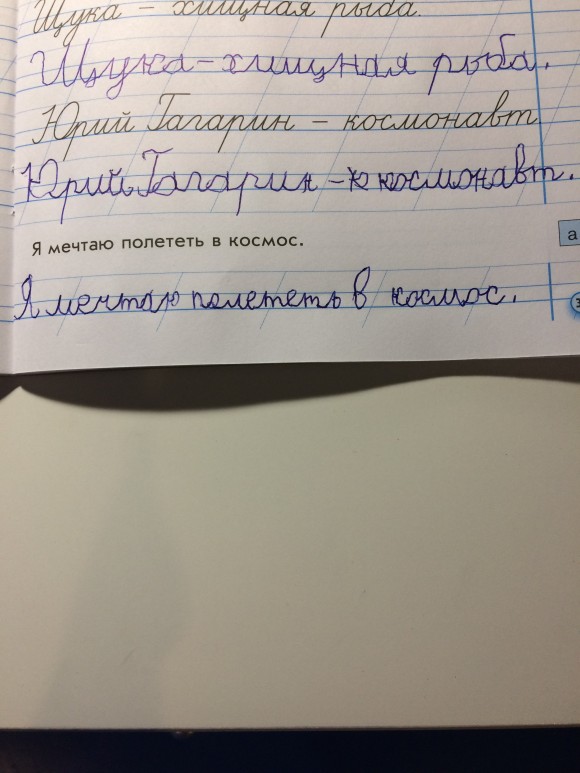 Щука – хищная рыба.
Щука – хищная рыба.
Юрий Гагарин – космонавт
Юрий Гагарин – к космонавт.
Я мечтаю полететь в космос.
а
Я мечтаю полететь в космос.